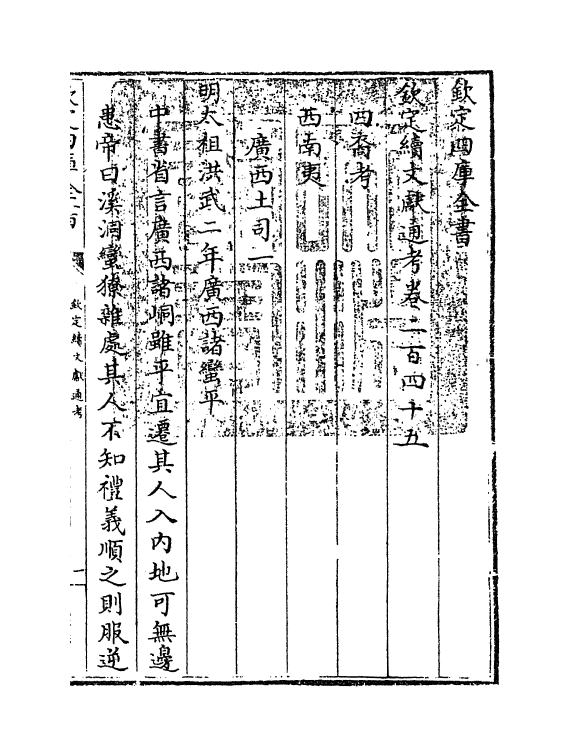 欽定四庫全書
欽定續文獻通考卷二百四十五
四裔考
西南夷
廣西土司一
明太祖洪武二年廣西諸蠻平
中書省言廣西諸峒雖平宜遷其人入內地可無邊
患帝曰溪洞蠻獠雜處其人不知禮義順之則服逆
欽定續文獻通考